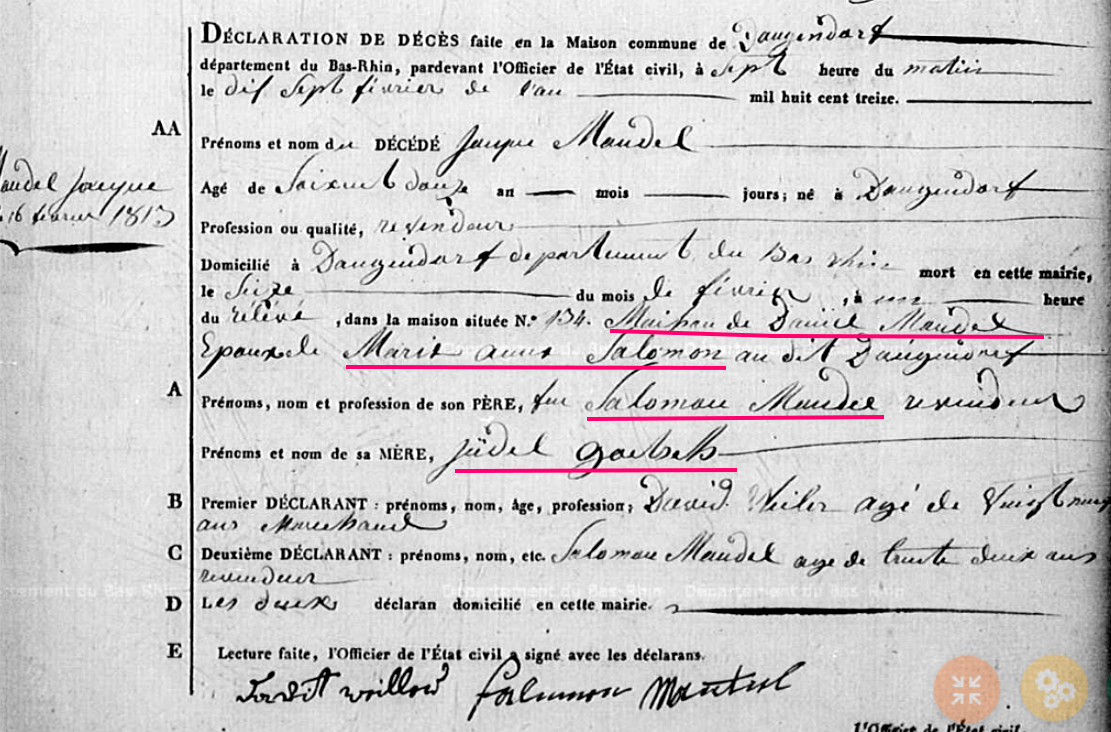 DÉCLARATION DE DÉCÈS faite en la Maison commune de Daugendorf
département du Bas-Rhin, pardevant l'Officier de l'État civil, à Sept heure du matin
le dix Sept février de l'an mil huit cent treize.
AA
Prénoms et nom du DÉCÉDÉ Jacque Mandel
Mandel Jacque
16 février 1813
Agé de Soixent douze an mois jours; né à Daugendorf
Profession ou qualité, revendeur
Domicilié à Daugendorf departement du Bas Rhin mort en cette mairie,
le Seize du mois de février, à une heure
du relévé, dans la maison située N.º 134. Maison de David Mandel
Epoux de Marie anne Salomon au dit Daugendorf
A
Prénoms, nom et profession de son PÈRE, feu Salomon Mandel revendeur
Prénoms et nom de sa MÈRE, jüdel
B
Premier DÉCLARANT : prénoms, nom, âge, profession; David Weiler agé de Vingt neuf
ans Marchand
C
Deuxième DÉCLARANT : prénoms, nom, etc. Salomon Mandel age de trente deux ans
revendeur
Département du Bas Rhin
D
Les deux déclaran domicilié en cette mairie.
E
Lecture faite, l'Officier de l'État civil a signé avec les déclarans.
Salomon
l'Officier de l'État civil